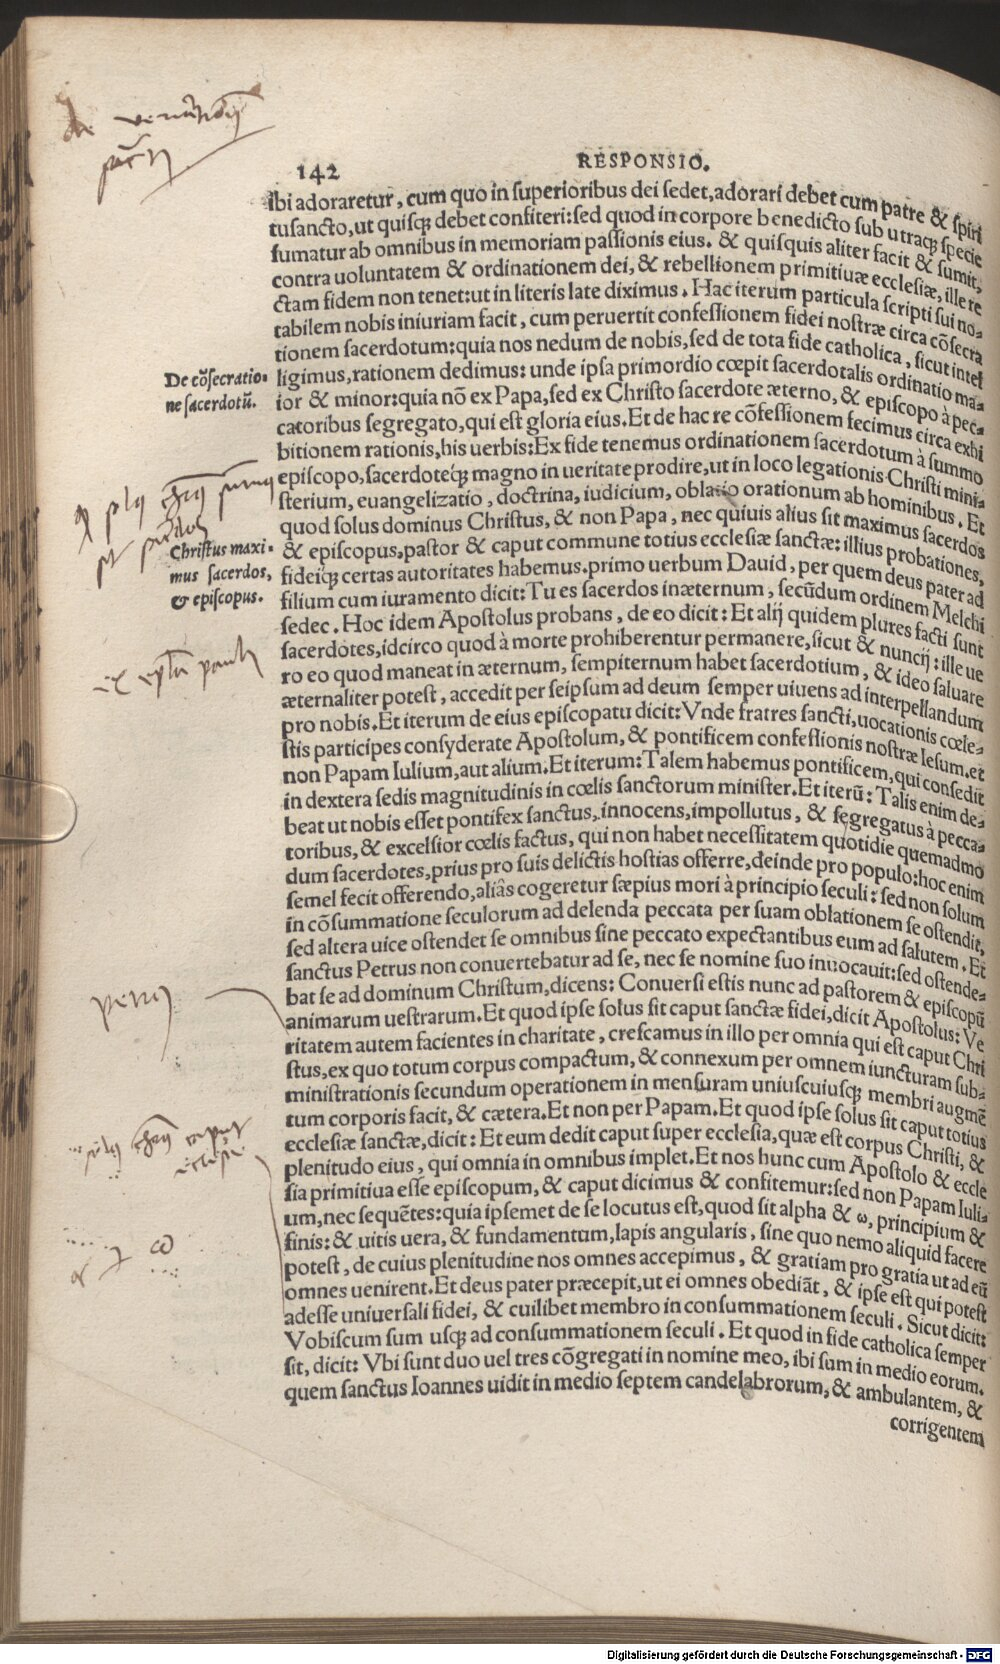 142
RESPONSIO.
ibi adoraretur, cum quo in superioribus dei sedet, adorari debet cum patre & spiri
tusancto, ut quisq; debet confiteri: sed quod in corpore benedicto sub utraq; specie
sumatur ab omnibus in memoriam passionis eius. & quisquis aliter facit & sumit,
contra uoluntatem & ordinationem dei, & rebellionem primitiuæ ecclesiæ, ille re
ctam fidem non tenet: ut in literis late diximus. Hac iterum particula scripti sui no-
tabilem nobis iniuriam facit, cum peruertit confessionem fidei nostræ circa cõsecra
tionem sacerdotum: quia nos nedum de nobis, sed de tota fide catholica, sicut intel
De cõsecratio-
ne sacerdotũ.
ligimus, rationem dedimus: unde ipsa primordio cœpit sacerdotalis ordinatio ma-
ior & minor: quia nõ ex Papa, sed ex Christo sacerdote æterno, & episcopo à pec-
catoribus segregato, qui est gloria eius. Et de hac re cõfessionem fecimus circa exhi
bitionem rationis, his uerbis: Ex fide tenemus ordinationem sacerdotum à summo
episcopo, sacerdoteq́; magno in ueritate prodire, ut in loco legationis Christi mini-
sterium, euangelizatio, doctrina, iudicium, oblatio orationum ab hominibus. Et
quod solus dominus Christus, & non Papa, nec quiuis alius sit maximus sacerdos
Christus maxi-
mus sacerdos,
& episcopus.
& episcopus, pastor & caput commune totius ecclesiæ sanctæ: illius probationes,
fideiq́; certas autoritates habemus. primo uerbum Dauid, per quem deus pater ad
filium cum iuramento dicit: Tu es sacerdos inæternum, secũdum ordinem Melchi
sedec. Hoc idem Apostolus probans, de eo dicit: Et alij quidem plures facti sunt
sacerdotes, idcirco quod à morte prohiberentur permanere, sicut & nuncij: ille ue
ro eo quod maneat in æternum, sempiternum habet sacerdotium, & ideo saluare
æternaliter potest, accedit per seipsum ad deum semper uiuens ad interpellandum
pro nobis. Et iterum de eius episcopatu dicit: Vnde fratres sancti, uocationis cœle-
stis participes consyderate Apostolum, & pontificem confessionis nostræ Iesum. et
non Papam Iulium, aut alium. Et iterum: Talem habemus pontificem, qui consedit
in dextera sedis magnitudinis in cœlis sanctorum minister. Et iterũ: Talis enim de-
beat ut nobis esset pontifex sanctus, innocens, impollutus, & segregatus à pecca-
toribus, & excelsior cœlis factus, qui non habet necessitatem quotidie quemadmo
dum sacerdotes, prius pro suis delictis hostias offerre, deinde pro populo: hoc enim
semel fecit offerendo, aliâs cogeretur sæpius mori à principio seculi: sed non solum
in cõsummatione seculorum ad delenda peccata per suam oblationem se ostendit,
sed altera uice ostendet se omnibus sine peccato expectantibus eum ad salutem. Et
sanctus Petrus non conuertebatur ad se, nec se nomine suo inuocauit: sed ostende-
bat se ad dominum Christum, dicens: Conuersi estis nunc ad pastorem & episcopũ
animarum uestrarum. Et quod ipse solus sit caput sanctæ fidei, dicit Apostolus: Ve
ritatem autem facientes in charitate, crescamus in illo per omnia qui est caput Chri
stus, ex quo totum corpus compactum, & connexum per omnem iuncturam sub-
ministrationis secundum operationem in mensuram uniuscuiusq; membri augmẽ
tum corporis facit, & cætera. Et non per Papam. Et quod ipse solus sit caput totius
ecclesiæ sanctæ, dicit: Et eum dedit caput super ecclesia, quæ est corpus Christi, &
plenitudo eius, qui omnia in omnibus implet. Et nos hunc cum Apostolo & eccle
sia primitiua esse episcopum, & caput dicimus & confitemur: sed non Papam Iuli-
um, nec sequẽtes: quia ipsemet de se locutus est, quod sit alpha & ω, principium &
finis: & uitis uera, & fundamentum, lapis angularis, sine quo nemo aliquid facere
potest, de cuius plenitudine nos omnes accepimus, & gratiam pro gratia ut ad eũ
omnes uenirent. Et deus pater præcepit, ut ei omnes obediãt, & ipse est qui potest
adesse uniuersali fidei, & cuilibet membro in consummationem seculi. Sicut dicit:
Vobiscum sum usq; ad consummationem seculi. Et quod in fide catholica semper
sit, dicit: Vbi sunt duo uel tres cõgregati in nomine meo, ibi sum in medio eorum.
quem sanctus Ioannes uidit in medio septem candelabrorum, & ambulantem, &
corrigentem
ω
Digitalisierung gefördert durch die Deutsche Forschungsgemeinschaft - DFG